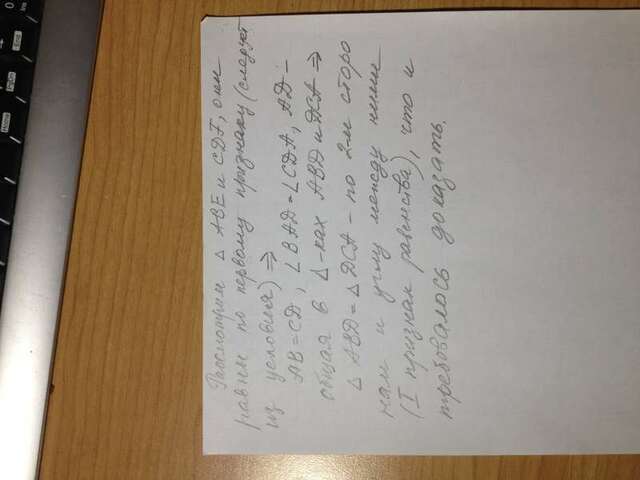 Рассмотрим △ ABE и CDF, они
равны по первому признаку (следует
из условия) ⇒
AB = CD, ∠BAD = ∠CDA, AD -
общая в △-ках ABD и DCA ⇒
△ ABD = △ DCA - по 2-м сторо
нам и углу между ними
(I признак равенства), что и
требовалось доказать.